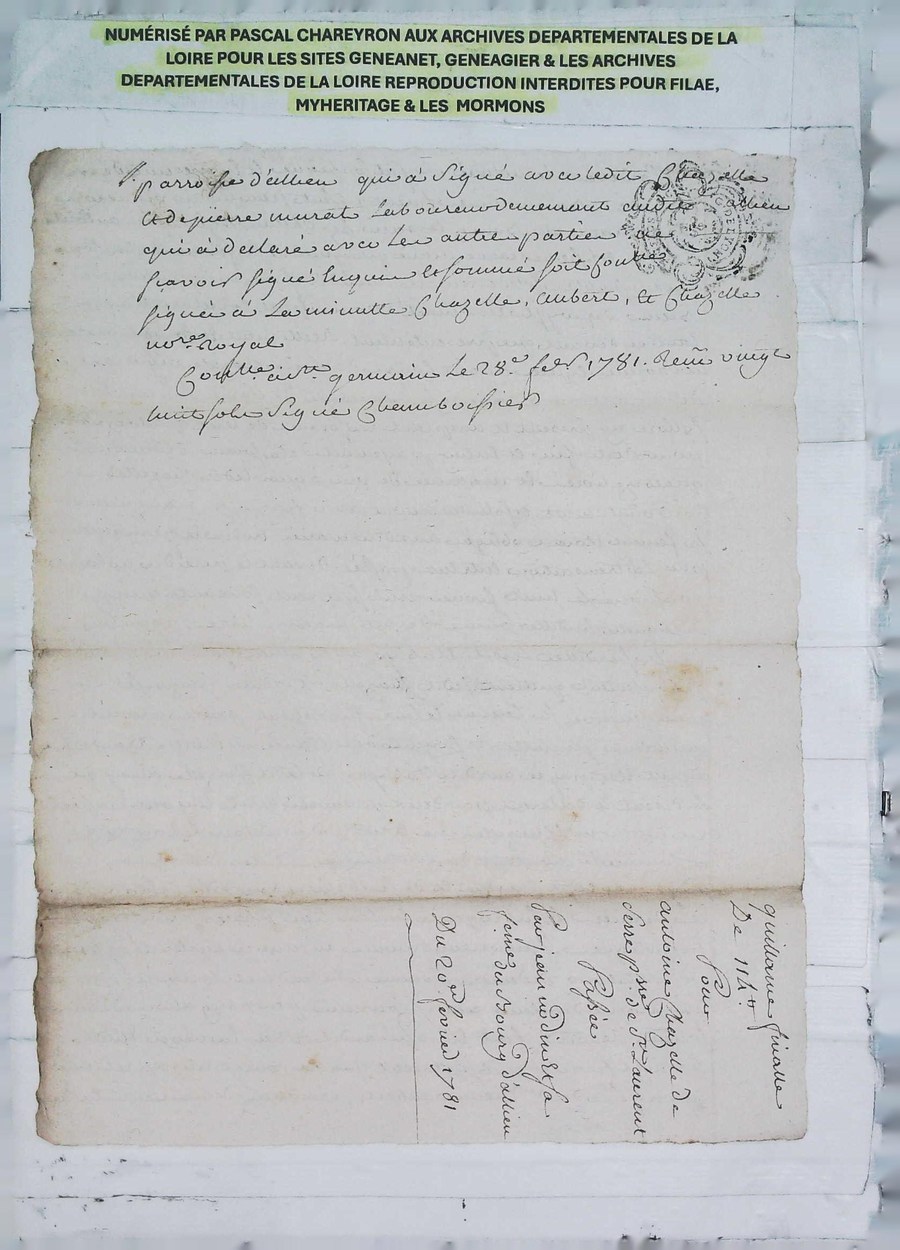 NUMÉRISÉ PAR PASCAL CHAREYRON AUX ARCHIVES DEPARTEMENTALES DE LA
LOIRE POUR LES SITES GENEANET, GENEAGIER & LES ARCHIVES
DEPARTEMENTALES DE LA LOIRE REPRODUCTION INTERDITES POUR FILAE,
MYHERITAGE & LES MORMONS
parroisse d'allieu qui a signé avec ledit Chazelle
et de pierre murat laboureur demeurant audit allieu
qui a declaré avec les autre parties ne
scavoir signé Enquis et sommé soit
signée a La minutte Chazelle, Aubert, et Chazelle
no.re Royal
Con.lle a st germain Le 28.e fev 1781. Reçu vingt
huit sols signé Chamboissier
quittance finalle
De 114 ₶
Pour
antoine Chazelle de
psse de St Laurent
Passée
Par jean et sa
feme du Bourg d'allieu
Du 20 fevrier 1781